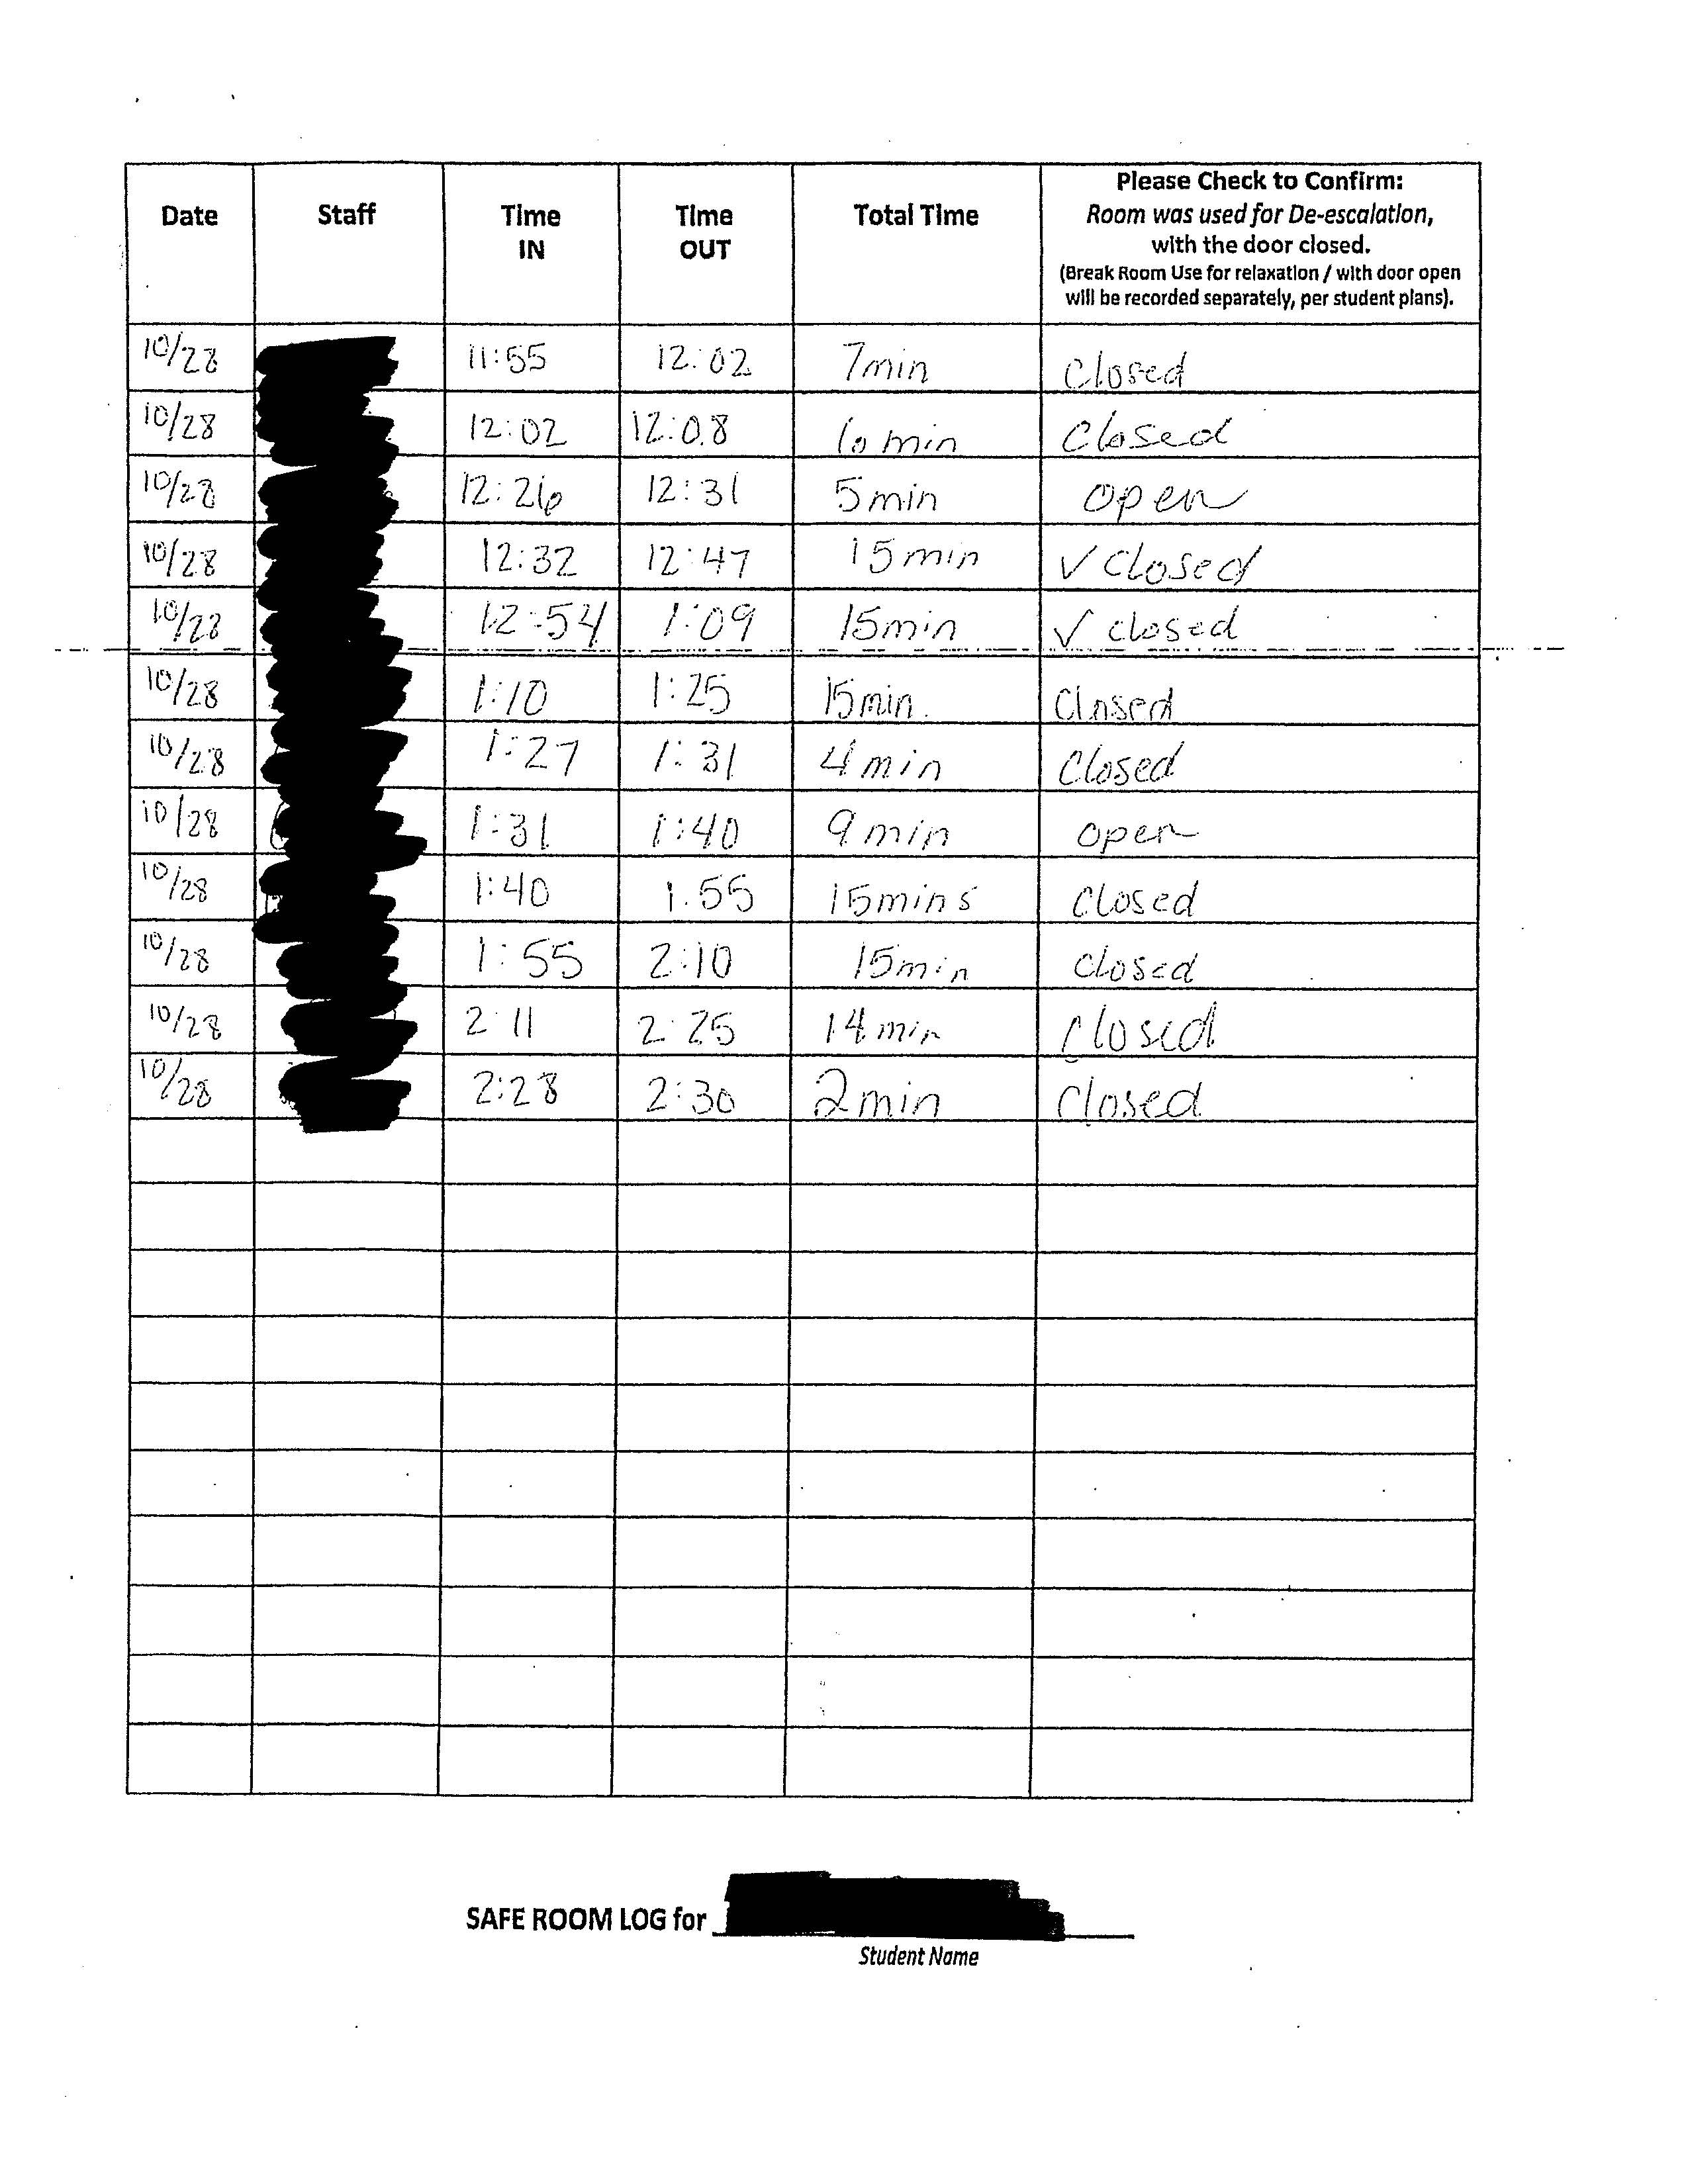 Date Staff Time IN Time OUT Total Time Please Check to Confirm: Room was used for De-escalation, with the door closed. (Break Room Use for relaxation / with door open will be recorded separately, per student plans).
10/28 11:55 12:02 7min Closed
10/28 12:02 12:08 6 min Closed
10/28 12:26 12:31 5min open
10/28 12:32 12:47 15 min ✓ Closed
10/28 12:54 1:09 15min ✓ closed
10/28 1:10 1:25 15min. Closed
10/28 1:27 1:31 4 min Closed
10/28 1:31 1:40 9 min open
10/28 1:40 1:55 15mins Closed
10/28 1:55 2:10 15min closed
10/28 2:11 2:25 14 min Closed
10/28 2:28 2:30 2 min Closed
SAFE ROOM LOG for
Student Name